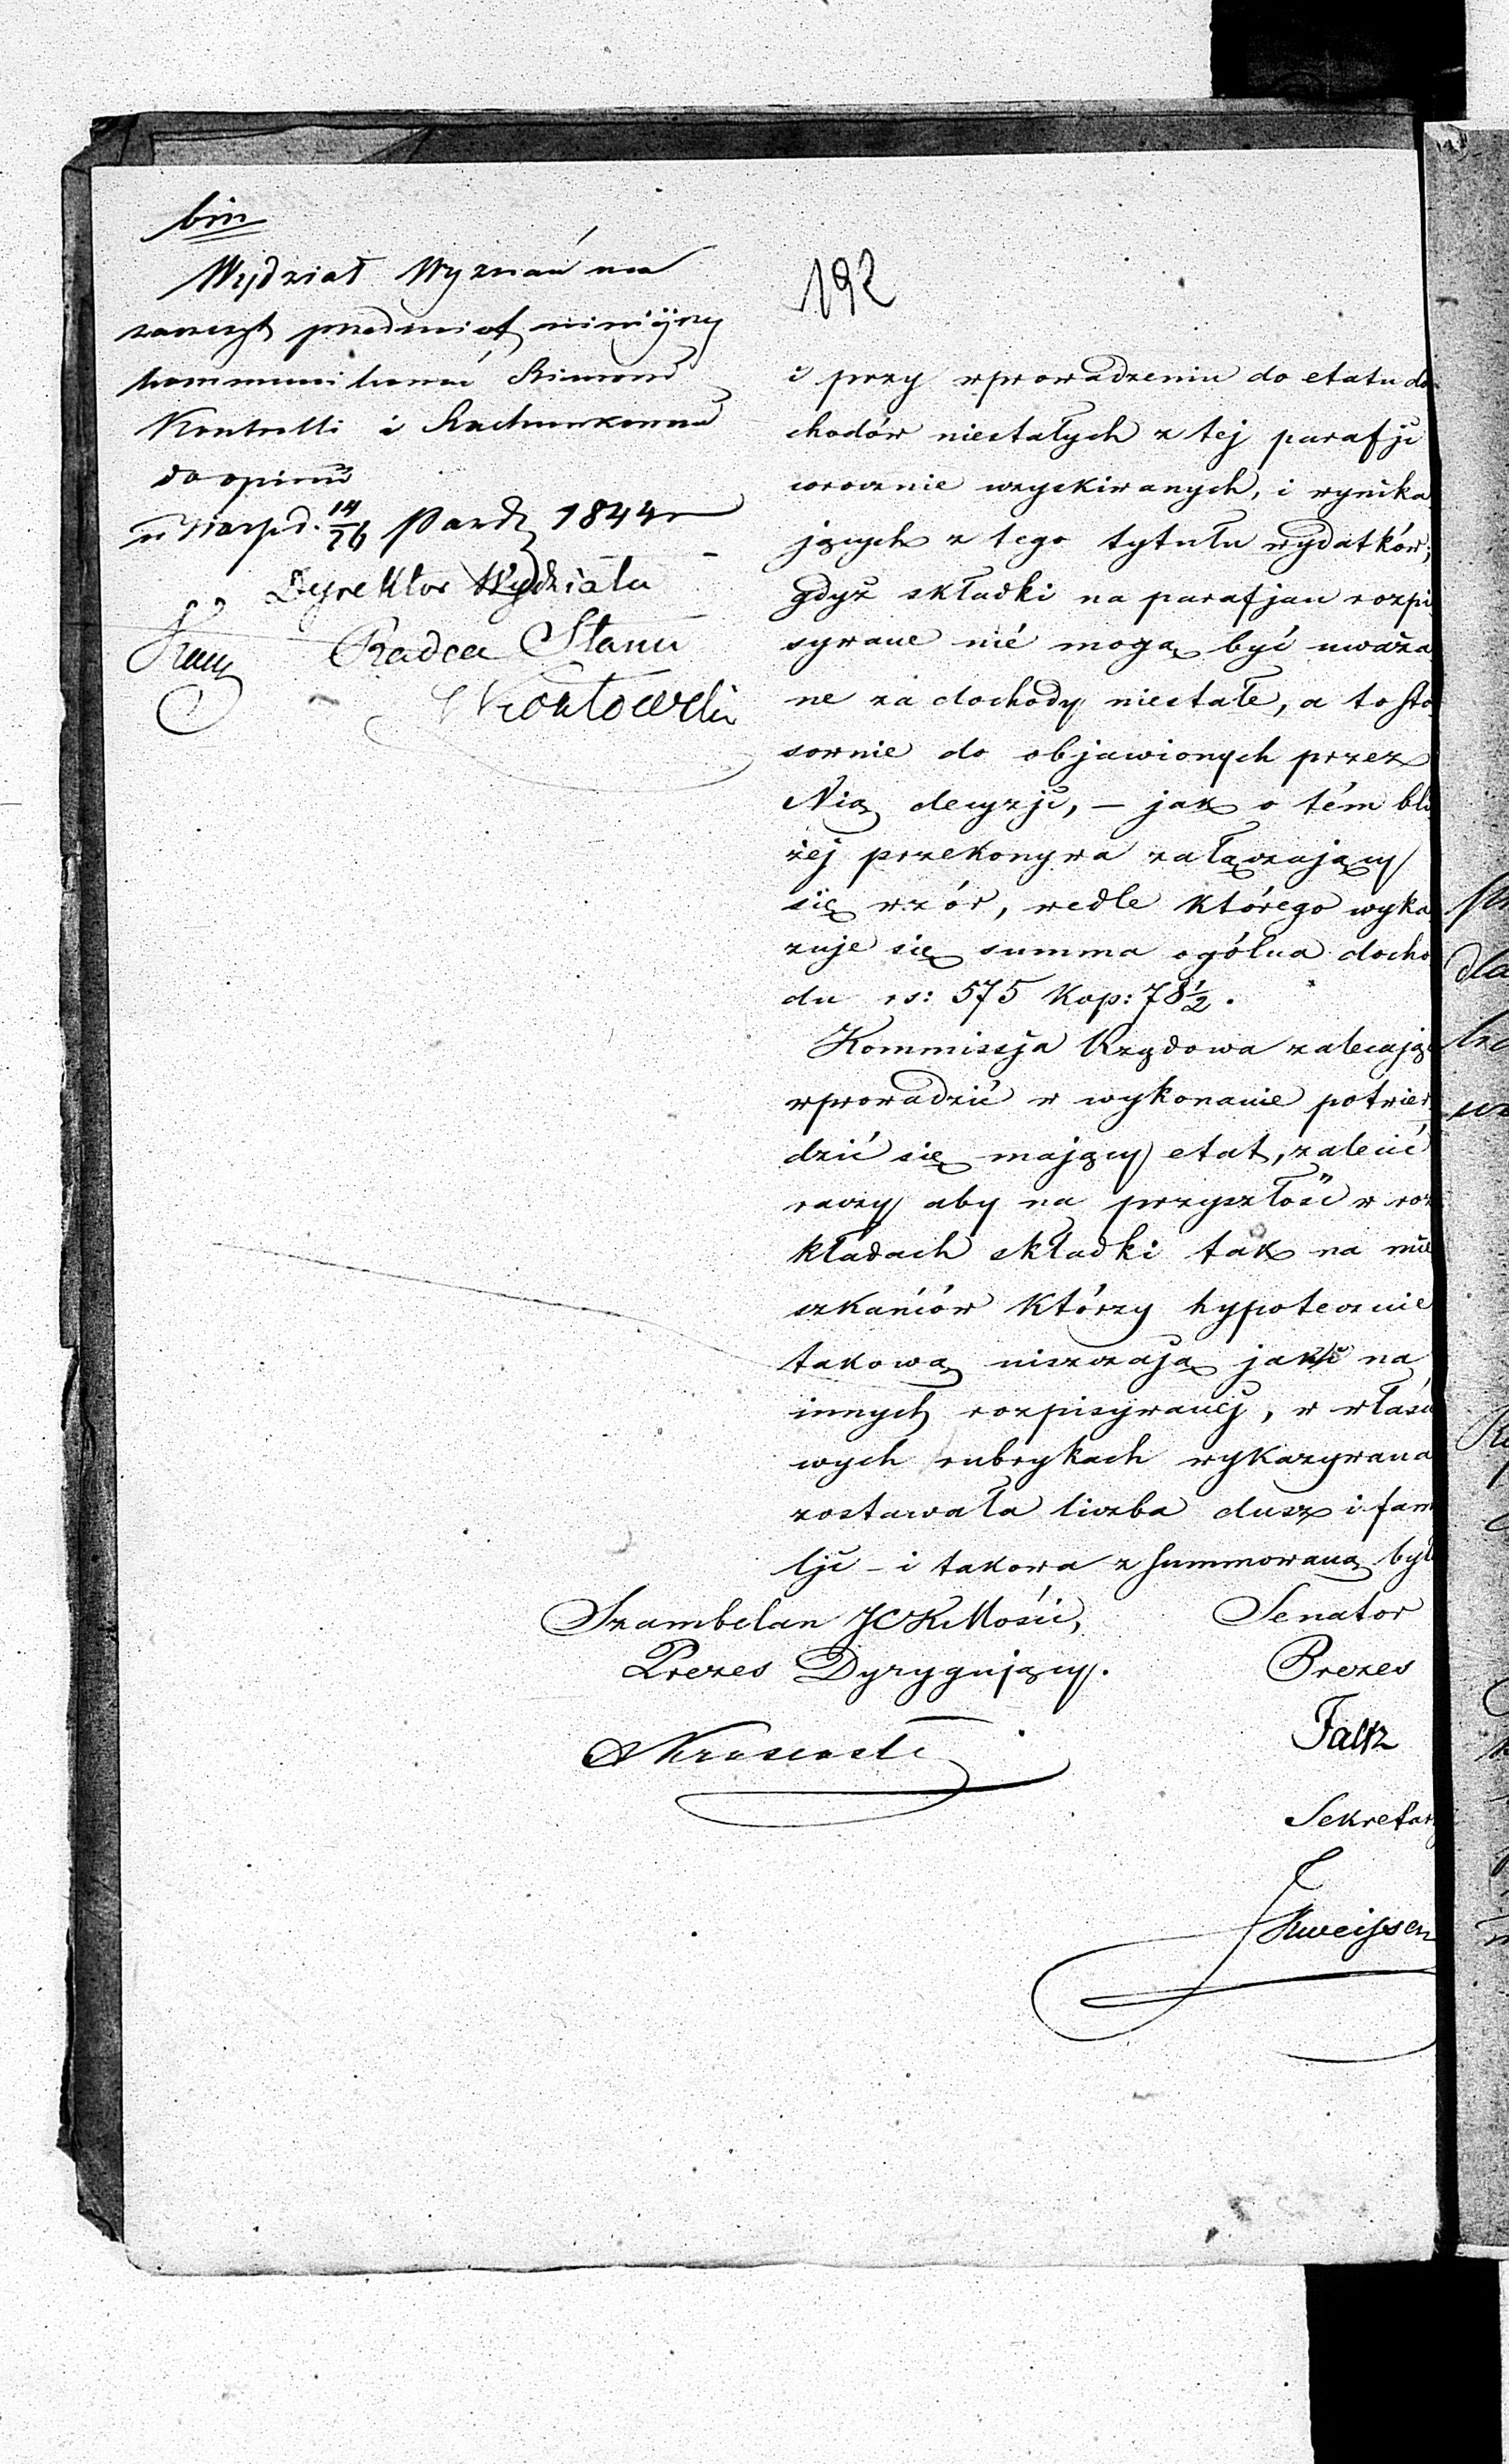 bm
Wydział Wyznań ma
zaszczyt przedmiot niniejszy
kommunikować
Kontrolli i Rachunkowości
do opinii
14/26 Paźdz 1844
Dyrektor Wydziału
Radca Stanu
192
i przy wprowadzeniu do etatu do
chodów niestałych z tej parafji
corocznie wzyskiwanych, i wynika
jących z tego tytułu wydatków;
gdyż składki na parafjan rozpi
sywane nié mogą być uważa
ne za dochody niestałe, a to sto
sownie do objawionych przez
Nią decyzji, – jak o tém bli
żej przekonywa załączający
się wzór, wedle którego wyka
zuje się summa ogólna docho
du rs: 575 Kop: 78½.
Kommissja Rządowa zalecając
wprowadzić w wykonanie potwier
dzić się mający etat, zalecić
raczy aby na przyszłość w roz
kładach składki tak na mie
szkańców którzy hypotecznie
takową niszczają jak i na
innych rozpisywanéj, w właści
wych rubrykach wykazywana
zostawała liczba dusz i fam
lji – i takowa zsummowaną był
Szambelan JCKMości,
Prezes Dyrygujący.
Senator
Prezes
Faltz
Sekretarz